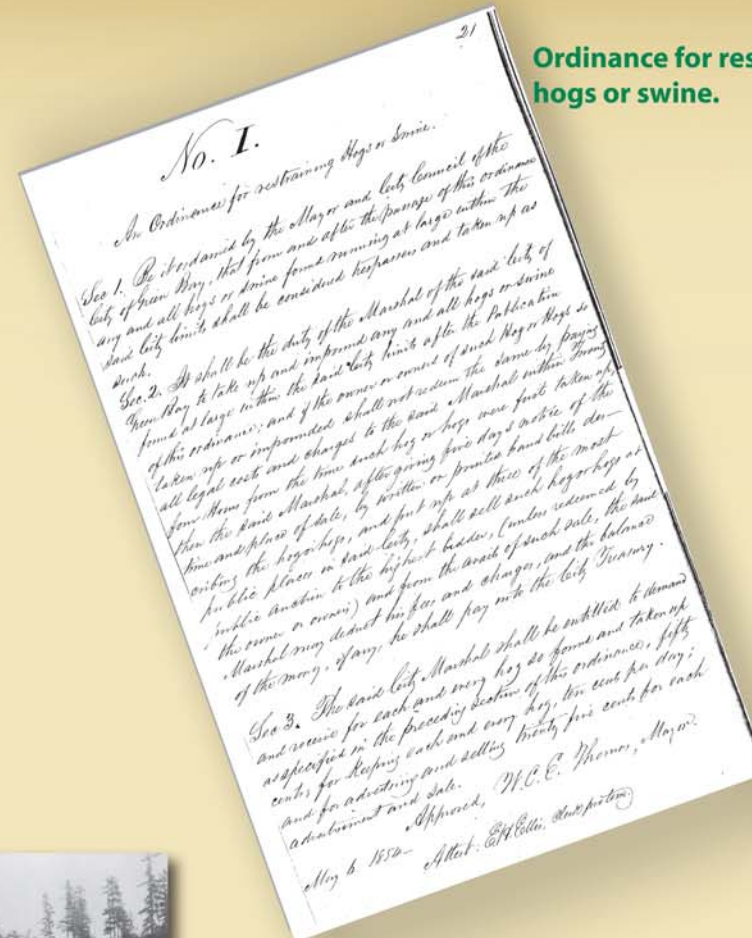 21
Ordinance for res
hogs or swine.
No. I.
An Ordinance for restraining Hogs or Swine.
Sec 1. Be it ordained by the Mayor and City Council of the
City of Green Bay, that from and after the passage of this ordinance
any and all hogs or swine found running at large within the
said City limits shall be considered trespassers and taken up as
such.
Sec. 2. It shall be the duty of the Marshal of the said City of
Green Bay to take up and impound any and all hogs or swine
found at large within the said City limits after the Publication
of this ordinance; and if the owner or owners of such Hog or Hogs so
taken up or impounded shall not redeem the same by paying
all legal costs and charges to the said Marshal within Twenty
four Hours from the time such hog or hogs were first taken up,
then the said Marshal, after giving five days notice of the
time and place of sale, by written or printed hand bills des-
cribing the hog or hogs, and put up at three of the most
public places in said City, shall sell such hog or hogs at
public auction to the highest bidder, (unless redeemed by
the owner or owners) and from the avails of such sale, the said
Marshal may deduct his fees and charges, and the balance
of the money, if any, he shall pay into the City Treasury.
Sec 3. The said City Marshal shall be entitled to demand
and receive for each and every hog so found and taken up
as specified in the preceding section of this ordinance, fifty
cents; for keeping each and every hog, ten cents per day;
and for advertising and selling twenty five cents for each
advertisement and sale.
Approved, W. C. E. Thomas, Mayor.
May 6 1854-
Attest: E H Ellis, Clerk pro tem.